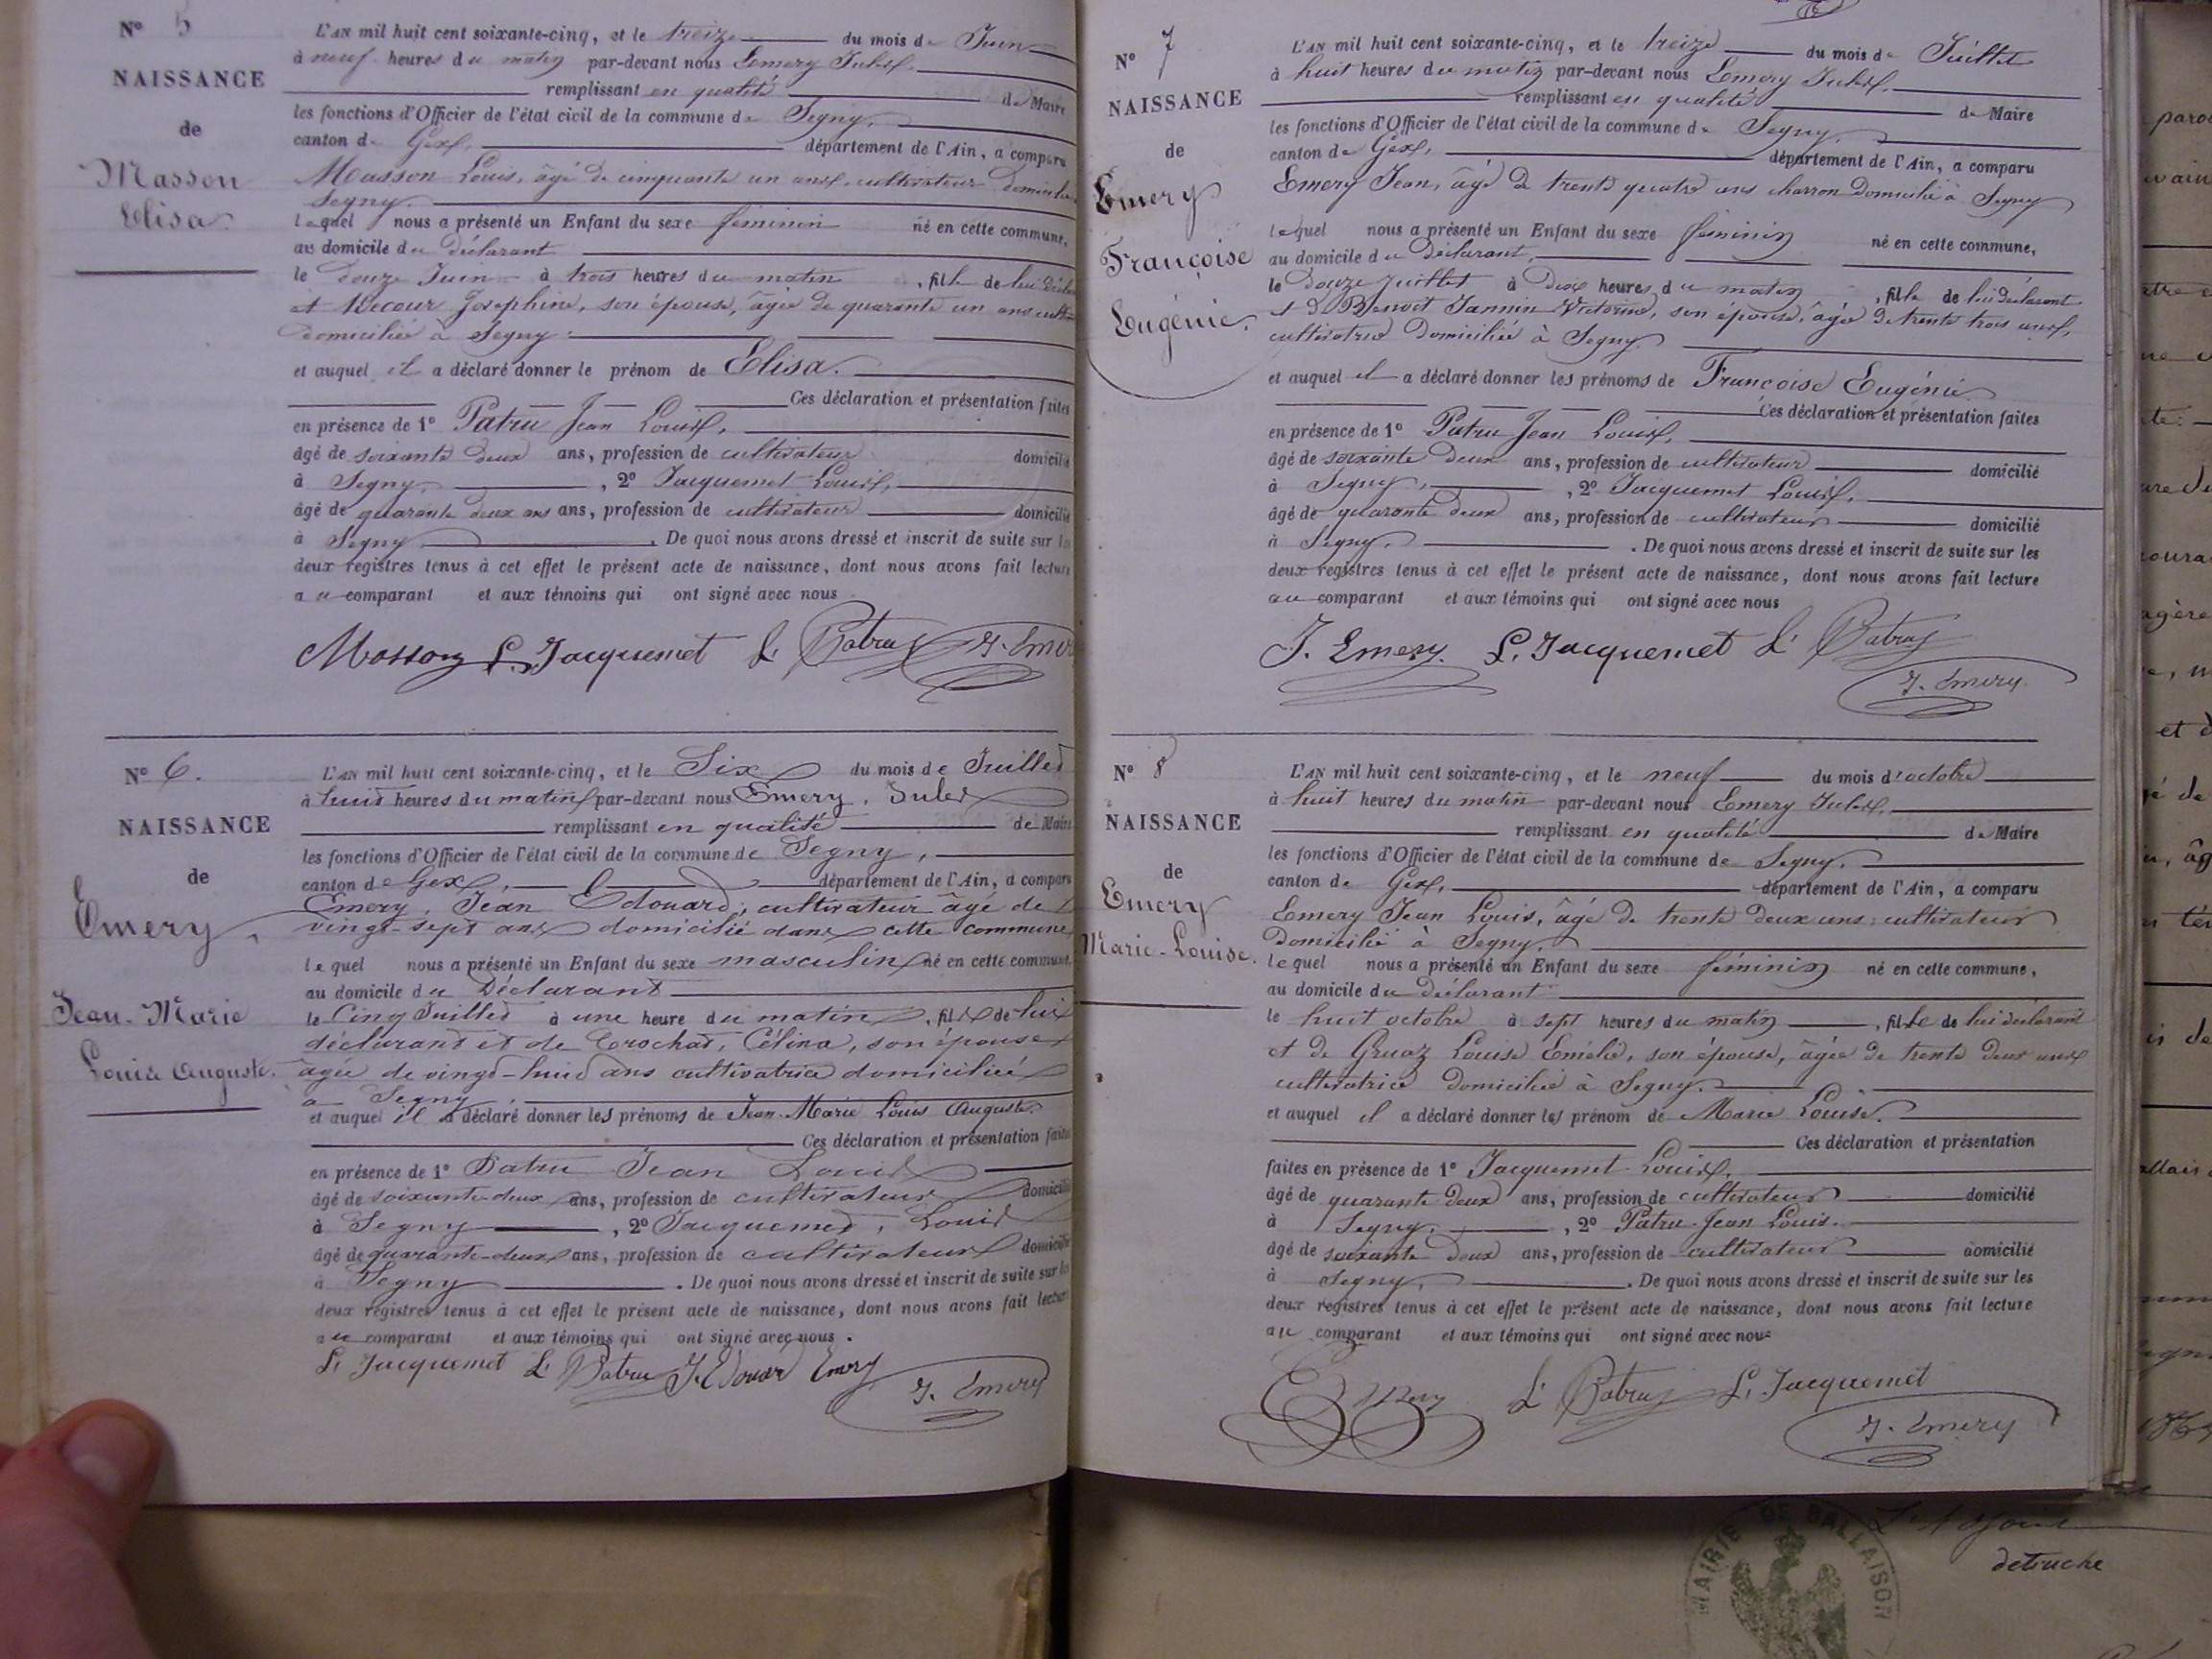 N° 5
NAISSANCE
de
Masson
Elisa.
L'AN mil huit cent soixante-cinq, et le treize du mois de Juin
à neuf heures du matin par-devant nous Emery Jules,
remplissant en qualité de Maire
les fonctions d'Officier de l'état civil de la commune de Segny,
canton de Gex, département de l'Ain, a comparu
Masson Louis, âgé de cinquante un ans, cultivateur
Segny.
lequel nous a présenté un Enfant du sexe féminin né en cette commune,
au domicile du déclarant
le douze Juin à trois heures du matin, fille de lui
et Josephine, son épouse, âgée de quarante un ans
domiciliée à Segny
et auquel il a déclaré donner le prénom de Elisa.
Ces déclaration et présentation faites
en présence de 1° Patru Jean Louis,
âgé de soixante deux ans, profession de cultivateur domicilié
à Segny, , 2° Jacquemet Louis,
âgé de quarante deux ans ans, profession de cultivateur domicilié
à Segny . De quoi nous avons dressé et inscrit de suite sur les
deux registres tenus à cet effet le présent acte de naissance, dont nous avons fait lecture
au comparant et aux témoins qui ont signé avec nous
Masson L. Jacquemet L. Patru J. Emery
N° 6.
NAISSANCE
de
Emery,
Jean-Marie
Louis Auguste.
L'AN mil huit cent soixante-cinq, et le Six du mois de Juillet
à huit heures du matin par-devant nous Emery, Jules
remplissant en qualité de Maire
les fonctions d'Officier de l'état civil de la commune de Segny,
canton de Gex, département de l'Ain, a comparu
Emery, Jean Edouard, cultivateur âgé de
vingt-sept ans domicilié dans cette commune
lequel nous a présenté un Enfant du sexe masculin né en cette commune,
au domicile du Déclarant
le Cinq Juillet à une heure du matin, fils de lui
déclarant et de Crochat, Célina, son épouse
âgée de vingt-huit ans cultivatrice domiciliée
à Segny
et auquel il a déclaré donner les prénoms de Jean-Marie Louis Auguste.
Ces déclaration et présentation faites
en présence de 1° Patru Jean Louis
âgé de soixante-deux ans, profession de cultivateur domicilié
à Segny , 2° Jacquemet, Louis
âgé de quarante-deux ans, profession de cultivateur domicilié
à Segny . De quoi nous avons dressé et inscrit de suite sur les
deux registres tenus à cet effet le présent acte de naissance, dont nous avons fait lecture
au comparant et aux témoins qui ont signé avec nous.
L. Jacquemet L. Patru J. Edouard Emery
J. Emery
N° 7
NAISSANCE
de
Emery
Françoise
Eugénie.
L'AN mil huit cent soixante-cinq, et le treize du mois de Juillet
à huit heures du matin par-devant nous Emery Jules,
remplissant en qualité de Maire
les fonctions d'Officier de l'état civil de la commune de Segny,
canton de Gex, département de l'Ain, a comparu
Emery Jean, âgé de trente quatre ans charron domicilié à Segny
lequel nous a présenté un Enfant du sexe féminin né en cette commune,
au domicile du déclarant,
le douze juillet à dix heures du matin, fille de lui déclarant
et de Benoit Jannin Victorine, son épouse, âgée de trente trois ans,
cultivatrice domiciliée à Segny
et auquel il a déclaré donner les prénoms de Françoise Eugénie
Ces déclaration et présentation faites
en présence de 1° Patru Jean Louis,
âgé de soixante deux ans, profession de cultivateur domicilié
à Segny, , 2° Jacquemet Louis,
âgé de quarante deux ans, profession de cultivateur domicilié
à Segny, . De quoi nous avons dressé et inscrit de suite sur les
deux registres tenus à cet effet le présent acte de naissance, dont nous avons fait lecture
au comparant et aux témoins qui ont signé avec nous
J. Emery. L. Jacquemet L. Patru
J. Emery
N° 8
NAISSANCE
de
Emery
Marie-Louise.
L'AN mil huit cent soixante-cinq, et le neuf du mois d'octobre
à huit heures du matin par-devant nous Emery Jules,
remplissant en qualité de Maire
les fonctions d'Officier de l'état civil de la commune de Segny,
canton de Gex, département de l'Ain, a comparu
Emery Jean Louis, âgé de trente deux ans, cultivateur
domicilié à Segny,
lequel nous a présenté un Enfant du sexe féminin né en cette commune,
au domicile du déclarant
le huit octobre à sept heures du matin, fille de lui déclarant
et de Gruaz Louise Emélie, son épouse, âgée de trente deux ans
cultivatrice domiciliée à Segny.
et auquel il a déclaré donner les prénom de Marie Louise.
Ces déclaration et présentation
faites en présence de 1° Jacquemet Louis,
âgé de quarante deux ans, profession de cultivateur domicilié
à Segny, , 2° Patru Jean Louis.
âgé de soixante deux ans, profession de cultivateur domicilié
à Segny, . De quoi nous avons dressé et inscrit de suite sur les
deux registres tenus à cet effet le présent acte de naissance, dont nous avons fait lecture
au comparant et aux témoins qui ont signé avec nous
Emery L. Patru L. Jacquemet
J. Emery
MAIRIE DE BALLAISON
detruche